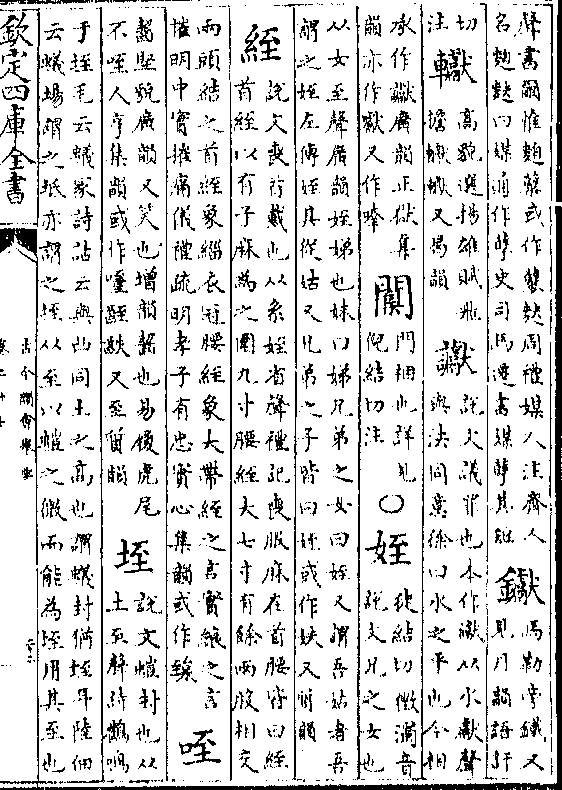 聲書爾惟麴糵或作䊝䴬周禮媒人注齊人
名麴䴬曰媒通作孽史司馬遷書媒孽其短 钀 馬勒旁鐵又
見月韻語訐
切 轥 高貌選揚雄賦飛
注 檐轥轥又曷韻 讞 說文議辠也本作𤅊从水獻聲
與法同意徐曰水之平也今相
承作讞廣韻正獄集
韻亦作𤅊又作㘔 闑 門梱也詳見
倪結切注 〇 姪 徒結切徵濁音
說文兄之女也
从女至聲廣韻姪娣也妹曰娣兄弟之女曰姪又謂吾姑者吾
謂之姪左傳姪其從姑又兄弟之子皆曰姪或作妷又質韻
絰 說文喪首戴也从糸姪省聲禮記喪服麻在首腰皆曰絰
首絰以有子麻為之圍九寸腰絰大七寸有餘兩股相交
兩頭結之首絰象緇衣冠腰絰象大帶絰之言實縗之言
摧明中實摧痛儀禮疏明孝子有忠實心集韻或作䌌 咥
齧堅貌廣韻又笑也增韻齧也易履虎尾
不咥人亨集韻或作嚏䶡䶔又至質韻 垤 說文螘封也从
土至聲詩鸛鳴
于垤毛云蟻冢詩詁云與凸同土之高也謂蟻封猶垤年陸佃
云蟻場謂之坻亦謂之垤从至以螘之微而能為垤用其至也
欽定四庫全書
古今韻會舉要
卷二十七